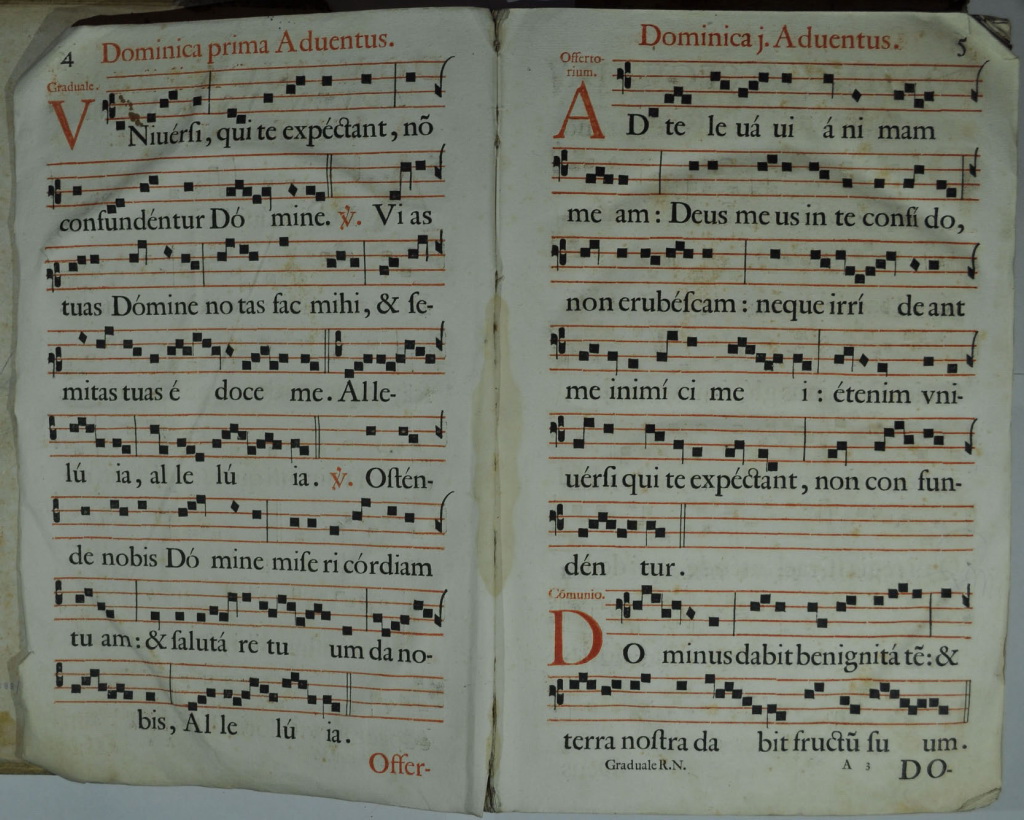 4
Dominica prima Aduentus.
Graduale.
V Niuérſi, qui te expéctant, nõ
confundéntur Dó mine. ℣. Vi as
tuas Dómine no tas fac mihi, & ſe-
mitas tuas é doce me. Alle-
lú ia, al le lú ia. ℣. Oſtén-
de nobis Dó mine miſe ri córdiam
tu am: & ſalutá re tu um da no-
bis, Al le lú ia.
Offer-
Dominica j. Aduentus.
5
Offerto-
rium.
A D te le uá ui á ni mam
me am: Deus me us in te confí do,
non erubéſcam: neque irrí de ant
me inimí ci me i: étenim vni-
uérſi qui te expéctant, non con fun-
dén tur.
Cõmunio.
D O minus dabit benignitá tẽ: &
terra noſtra da bit fructũ ſu um.
Graduale R.N.
A 3
DO-